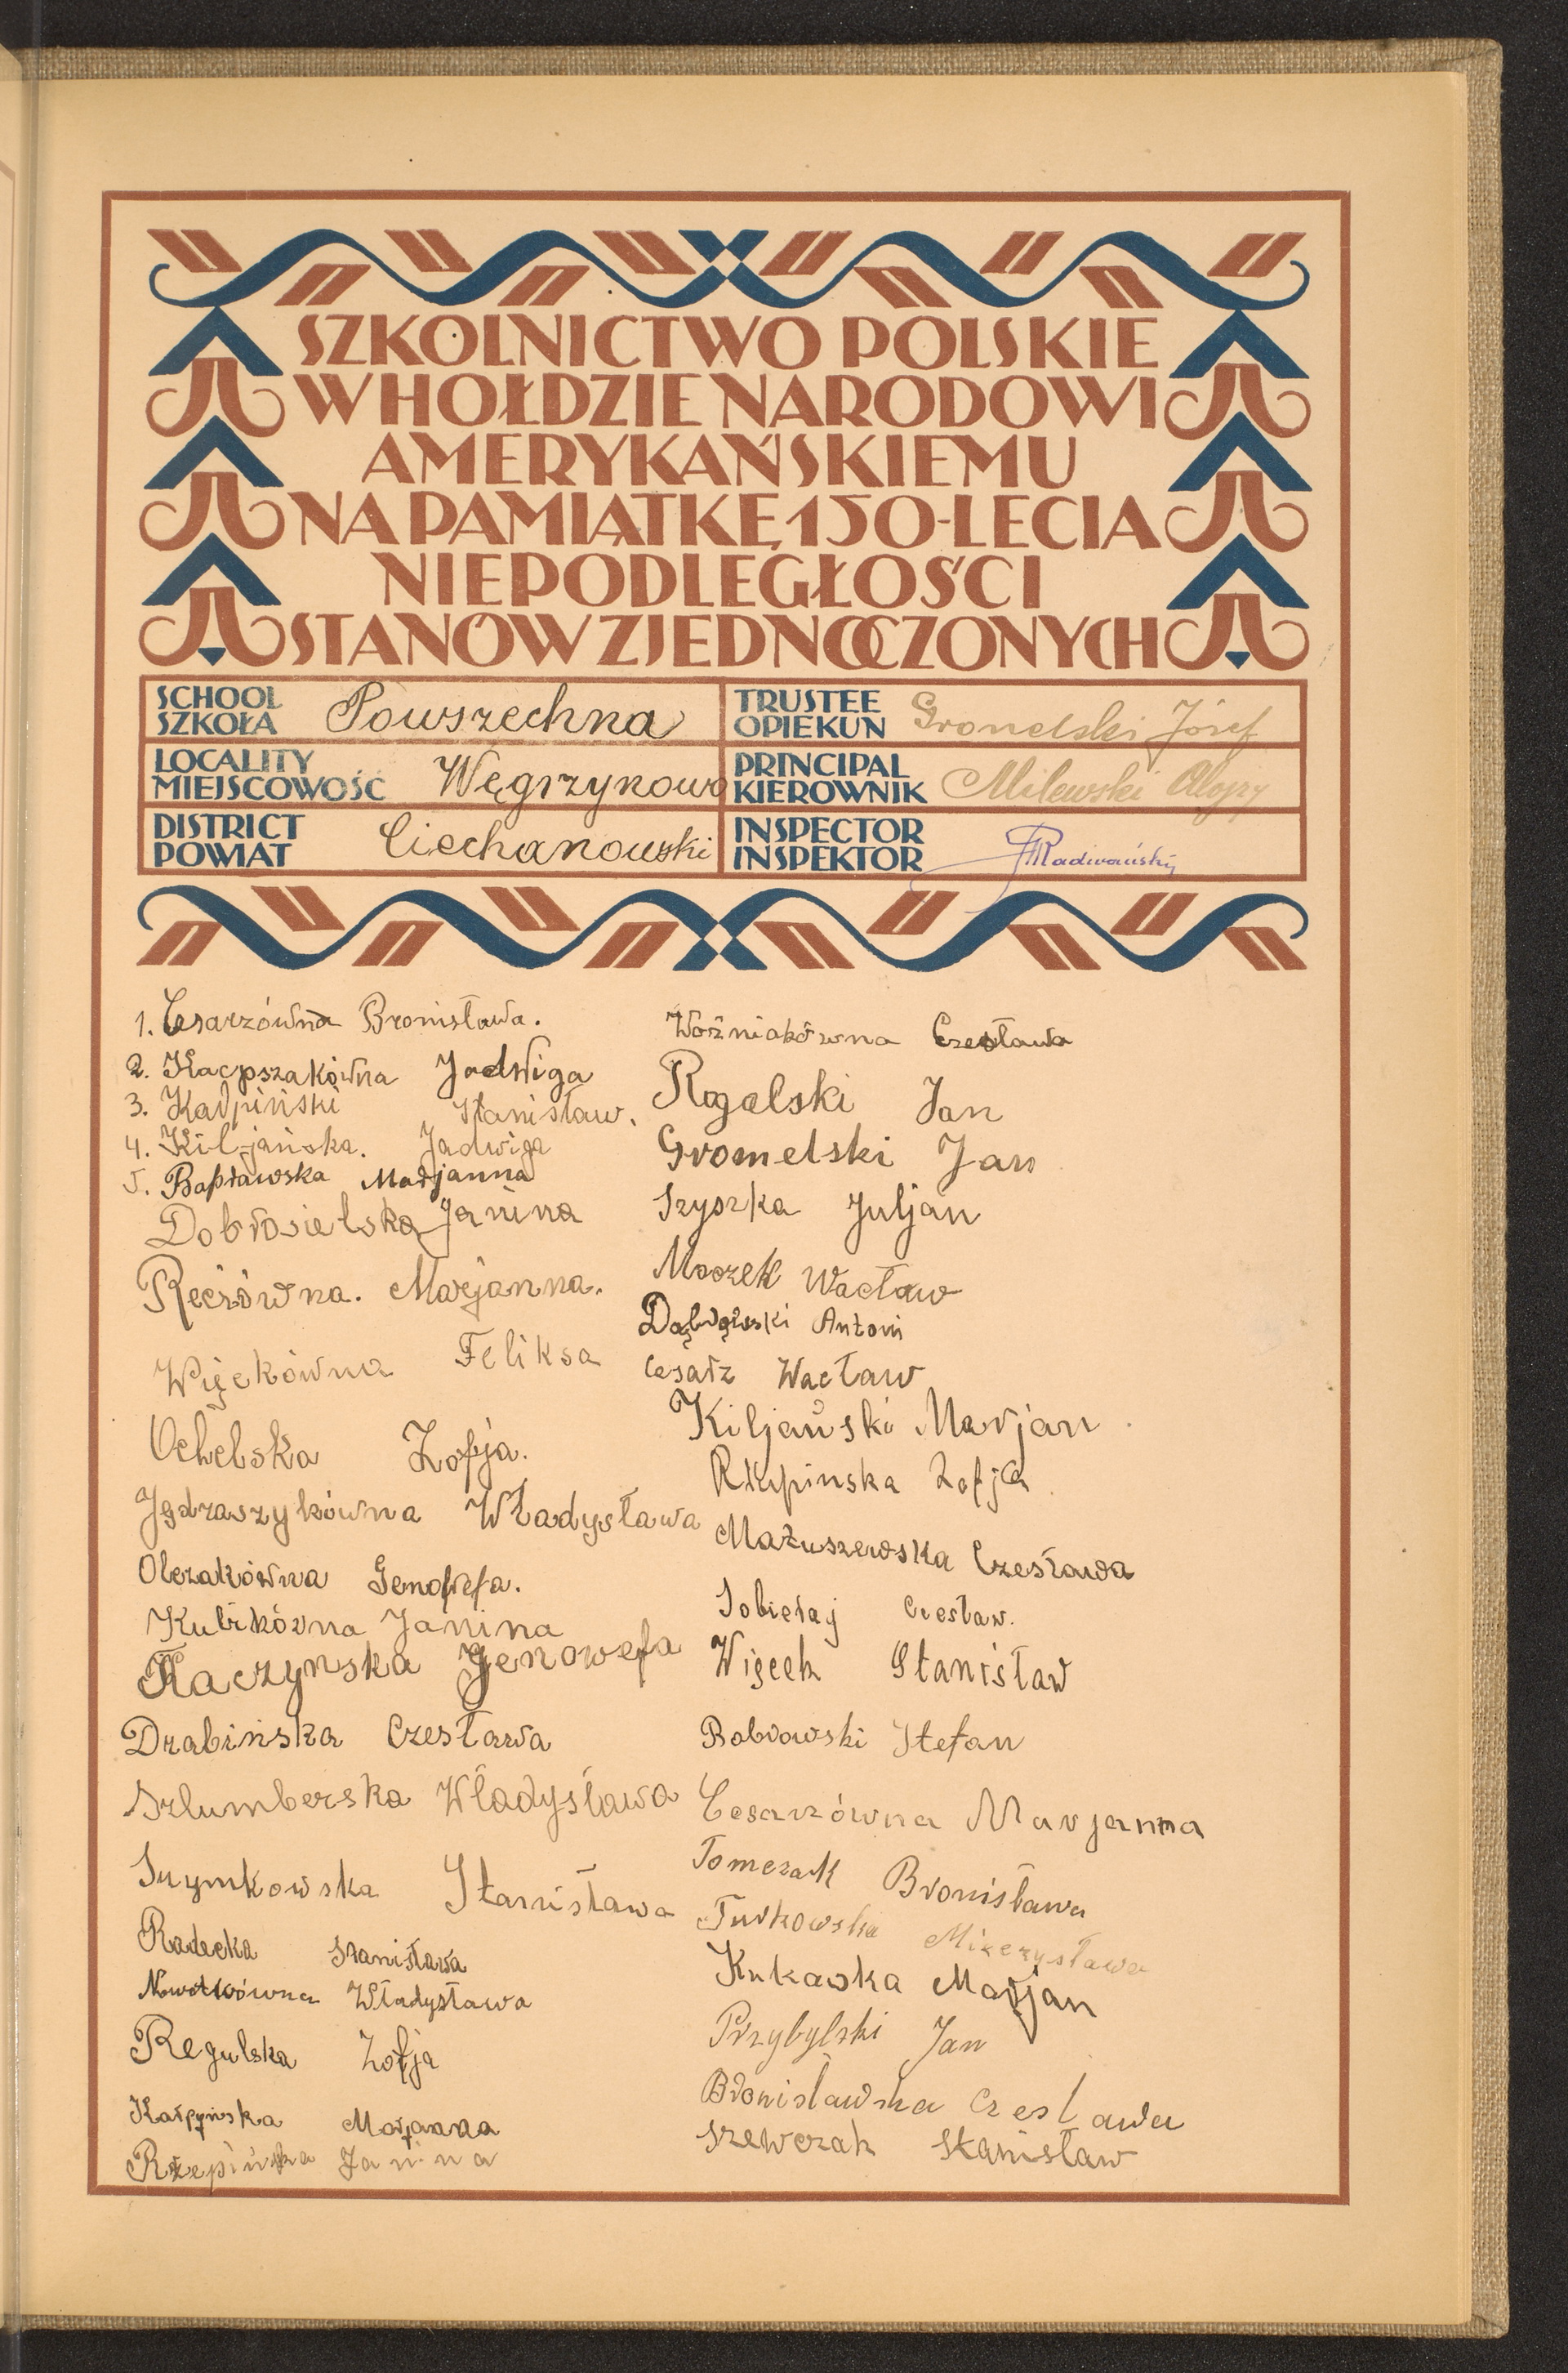 SZKOLNICTWO POLSKIE
W HOŁDZIE NARODOWI
AMERYKAŃSKIEMU
NA PAMIĄTKĘ 150-LECIA
NIEPODLEGŁOŚCI
STANÓW ZJEDNOCZONYCH
SCHOOL
SZKOŁA
Powszechna
TRUSTEE
OPIEKUN
Gromelski Józef
LOCALITY
MIEJSCOWOŚĆ
Węgrzynowo
PRINCIPAL
KIEROWNIK
Milewski Alojzy
DISTRICT
POWIAT
Ciechanowski
INSPECTOR
INSPEKTOR
1. Cesarzówna Bronisława.
2. Kacpszakówna Jadwiga
3. Karpiński Stanisław.
4. Kiljańska. Jadwiga
5. Marjanna
Dobrosielska Janina
Reczówna. Marjanna.
Więckówna Feliksa
Ochelska Zofja.
Jędraszykówna Władysława
Olczakówna Genowefa.
Kubikówna Janina
Kaczynska Genowefa
Drabińska Czesława
Szlumberska Władysława
Szymkowska Stanisława
Radecka Stanisława
Władysława
Regulska Zofja
Karpyńska Marjanna
Rzepińska Janina
Woźniakówna Czesława
Rogalski Jan
Gromelski Jan
Szyszka Juljan
Moczek Wacław
Antoni
Cesarz Wacław
Kiljański Marjan
Zofja
Czesława
Sobieraj Czesław.
Więcek Stanisław
Bobrowski Stefan
Cesarzówna Marjanna
Tomczak Bronisława
Turkowska Mieczysława
Kukawka Marjan
Przybylski Jan
Bronisławska Czesława
Szewczak Stanisław